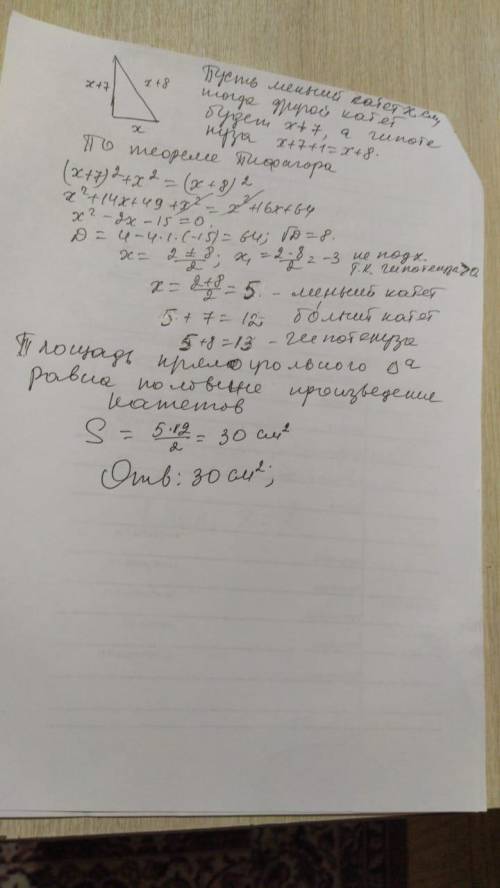 x+7
x+8
x
Пусть менший катет x см,
тогда другой катет
будет x+7, а гипоте
нуза x+7+1=x+8.
По теореме Пифагора
(x+7)²+x²=(x+8)²
x²+14x+49+x²=x²+16x+64
x²-2x-15=0
D=4-4·1·(-15)=64; √D=8.
x=(2±8)/2; x₁=(2-8)/2=-3 не подх.
т.к. гипотенуза>0
x=(2+8)/2=5. - менший катет
5+7=12 больший катет
5+8=13 - гипотенуза
Площадь прямоугольного Δа
равна половине произведение
катетов
S=(5·12)/2=30 см²
Отв: 30 см²;